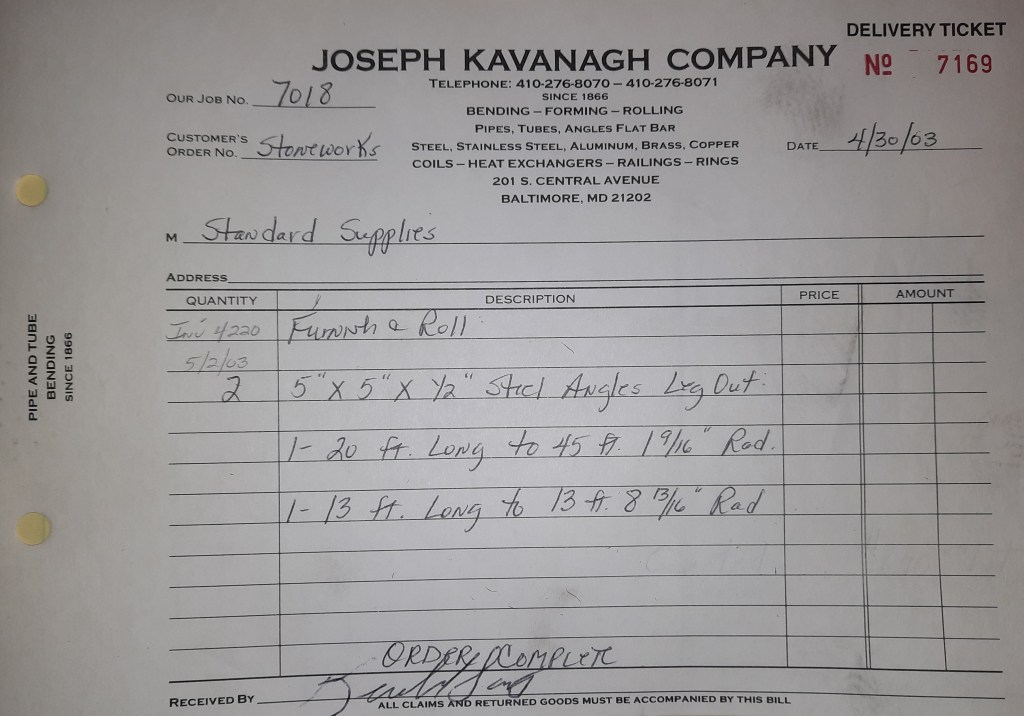 DELIVERY TICKET
JOSEPH KAVANAGH COMPANY
Nº 7169
TELEPHONE: 410-276-8070 – 410-276-8071
SINCE 1866
OUR JOB NO. 7018
BENDING – FORMING – ROLLING
PIPES, TUBES, ANGLES FLAT BAR
CUSTOMER'S
ORDER NO. Stoneworks
STEEL, STAINLESS STEEL, ALUMINUM, BRASS, COPPER
DATE 4/30/03
COILS – HEAT EXCHANGERS – RAILINGS – RINGS
201 S. CENTRAL AVENUE
BALTIMORE, MD 21202
M Standard Supplies
ADDRESS
QUANTITY DESCRIPTION PRICE AMOUNT
Inv 4220 Furnish & Roll
5/2/03
2 5" X 5" X 1/2" Steel Angles Leg Out:
1- 20 ft. Long to 45 ft. 1 9/16" Rad.
1- 13 ft. Long to 13 ft. 8 13/16" Rad
ORDER COMPLETE
RECEIVED BY
ALL CLAIMS AND RETURNED GOODS MUST BE ACCOMPANIED BY THIS BILL
PIPE AND TUBE
BENDING
SINCE 1866